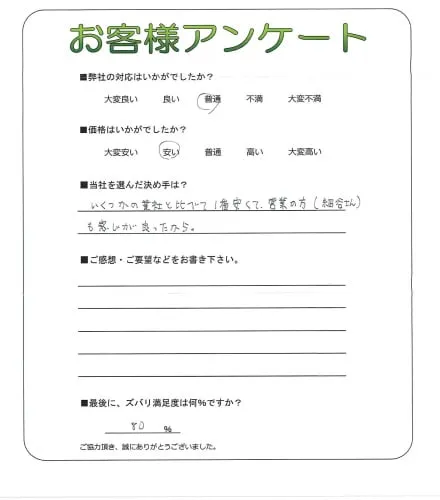 お客様アンケート
■弊社の対応はいかがでしたか？
大変良い 良い 普通 不満 大変不満
■価格はいかがでしたか？
大変安い 安い 普通 高い 大変高い
■当社を選んだ決め手は？
いくつかの業社と比べて1番安くて、営業の方(細谷さん)
も感じが良ったから。
■ご感想・ご要望などをお書き下さい。
■最後に、ズバリ満足度は何%ですか？
80 %
ご協力頂き、誠にありがとうございました。